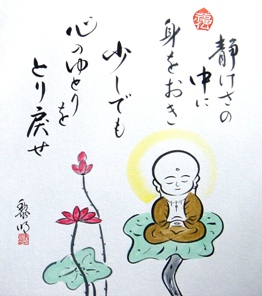 静けさの
中に
身をおき
少しでも
心のゆとりを
とり戻せ
黎明